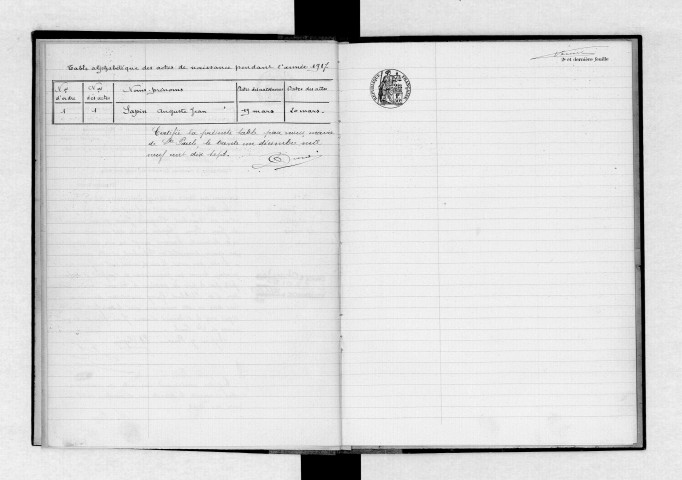 Table alphabétique des actes de naissance pendant l'année 1917
Nos d'ordre Nos des actes Noms-prénoms Dates des naissances Dates des actes
1 1 Auguste Jean 19 mars 20 mars
Certifié la présente table par nous, maire
de St Paul, le trente un décembre mil
neuf cent dix sept.
2e et dernière feuille